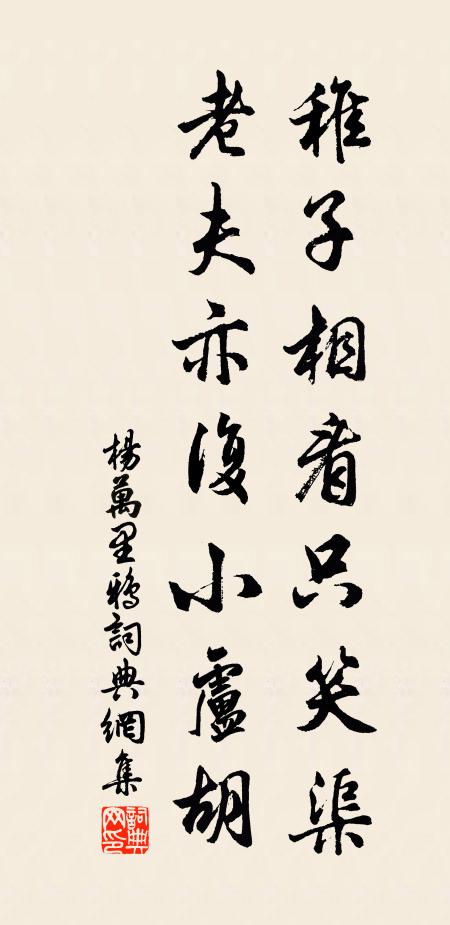 稚子相看只笑渠
老夫亦復小盧胡
楊萬里鴉詞典網集
詞典網印